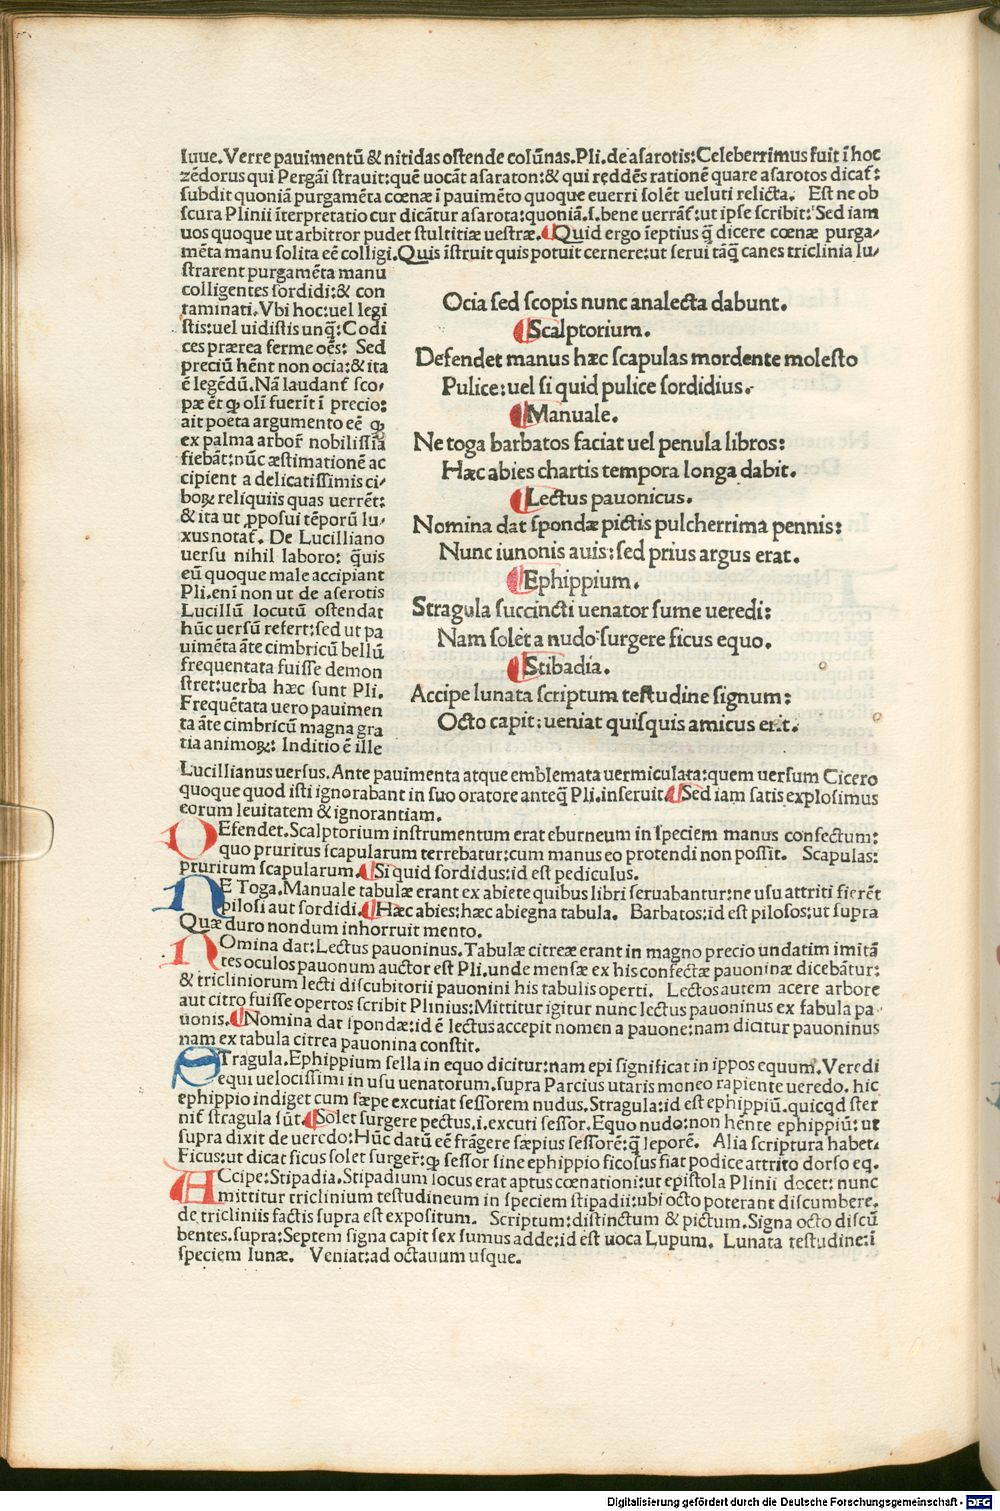 Iuue. Verre pauimentū & nitidas ostende colūnas. Pli. de asarotis: Celeberrimus fuit ī hoc
zēdorus qui Pergāi strauit: quē uocāt asaraton: & qui ręddēs rationē quare asarotos dicat̄:
subdit quoniā purgamēta cœnæ ī pauimēto quoque euerri solēt ueluti relicta. Est ne ob
scura Plinii īterpretatio cur dicātur asarota: quoniā .s. bene uerrāt̄: ut ipse scribit: Sed iam
uos quoque ut arbitror pudet stultitiæ uestræ. Quid ergo īeptius q̄ dicere cœnæ purga/
mēta manu solita eē colligi. Quis īstruit quis potuit cernere: ut serui tāq̄ canes triclinia lu/
strarent purgamēta manu
colligentes sordidi: & con
taminati. Vbi hoc: uel legi
stis: uel uidistis unq̄: Codi
ces prærea ferme oēs: Sed
preciū hēnt non ocia: & ita
ē legēdū. Nā laudant̄ sco/
pæ ēt ꝙ olī fuerīt ī precio:
ait poeta argumento eē ꝙ
ex palma arbor̄ nobilissīa
fiebāt: nūc æstimationē ac
cipient a delicatissimis ci/
boꝝ reliquiis quas uerrēt:
& ita ut ꝓposui tēporū lu/
xus notat̄. De Lucilliano
uersu nihil laboro: q̄uis
eū quoque male accipiant
Pli. enī non ut de aserotis
Lucillū locutū ostendat
hūc uersū refert: sed ut pa
uimēta āte cimbricū bellū
frequentata fuisse demon
stret: uerba hæc sunt Pli.
Frequētata uero pauimen
ta āte cimbricū magna gra
tia animoꝝ: Inditio ē ille
Ocia sed scopis nunc analecta dabunt.
Scalptorium.
Defendet manus hæc scapulas mordente molesto
Pulice: uel si quid pulice sordidius.
Manuale.
Ne toga barbatos faciat uel penula libros:
Hæc abies chartis tempora longa dabit.
Lectus pauonicus.
Nomina dat spondæ pictis pulcherrima pennis:
Nunc iunonis auis: sed prius argus erat.
Ephippium.
Stragula succincti uenator sume ueredi:
Nam solet a nudo surgere ficus equo.
Stibadia.
Accipe lunata scriptum testudine signum:
Octo capit: ueniat quisquis amicus erit.
Lucillianus uersus. Ante pauimenta atque emblemata uermiculata: quem uersum Cicero
quoque quod isti ignorabant in suo oratore anteq̄ Pli. inseruit. Sed iam satis explosimus
eorum leuitatem & ignorantiam.
DEfendet. Scalptorium instrumentum erat eburneum in speciem manus confectum:
quo pruritus scapularum terrebatur: cum manus eo protendi non possit. Scapulas:
pruritum scapularum. Si quid sordidus: id est pediculus.
NE Toga. Manuale tabulæ erant ex abiete quibus libri seruabantur: ne usu attriti fierēt
pilosi aut sordidi. Hæc abies: hæc abiegna tabula. Barbatos: id est pilosos: ut supra
Quæ duro nondum inhorruit mento.
NOmina dat: Lectus pauoninus. Tabulæ citreæ erant in magno precio undatim imitā
tes oculos pauonum auctor est Pli. unde mensæ ex his confectæ pauoninæ dicebātur:
& tricliniorum lecti discubitorii pauonini his tabulis operti. Lectos autem acere arbore
aut citro fuisse opertos scribit Plinius: Mittitur igitur nunc lectus pauoninus ex fabula pa
uonis. Nomina dat spondæ: id ē lectus accepit nomen a pauone: nam dicitur pauoninus
nam ex tabula citrea pauonina constit.
STragula. Ephippium sella in equo dicitur: nam epi significat in ippos equum. Veredi
equi uelocissimi in usu uenatorum. supra Parcius utaris moneo rapiente ueredo. hic
ephippio indiget cum sæpe excutiat sessorem nudus. Stragula: id est ephippiū. quicqd ster
nit̄ stragula sūt. Solet surgere pectus .i. excuti sessor. Equo nudo: non hēnte ephippiū: ut
supra dixit de ueredo: Hūc datū eē frāgere sæpius sessorē: q̄ leporē. Alia scriptura habet.
Ficus: ut dicat ficus solet surger̄: ꝙ sessor sine ephippio ficosus fiat podice attrito dorso eq.
ACcipe: Stipadia. Stipadium locus erat aptus cœnationi: ut epistola Plinii docet: nunc
mittitur triclinium testudineum in speciem stipadii: ubi octo poterant discumbere.
de tricliniis factis supra est expositum. Scriptum: distinctum & pictum. Signa octo discū
bentes. supra: Septem signa capit sex sumus adde: id est uoca Lupum. Lunata testudine: ī
speciem lunæ. Veniat: ad octauum usque.
Digitalisierung gefördert durch die Deutsche Forschungsgemeinschaft - DFG